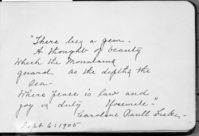 "There lies a gem-
A thought of beauty
Which the mountains
guard as the depths the
sea-
Where Peace is law and
joy is duty
Caroline
Sept 6 1905